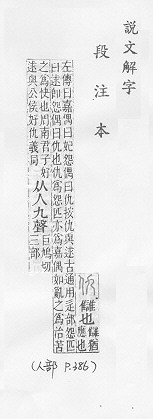 說文解字
段注本
仇 讎也 讎猶
應也
左傳曰嘉偶曰妃怨偶曰仇按仇與逑古通用辵部怨匹
曰逑卽怨偶曰仇也仇爲怨匹亦爲嘉偶如亂之爲治苦
之爲快也周南君子好
逑與公侯好仇義同 从人九聲 巨鳩切
三部
(人部 P.386)